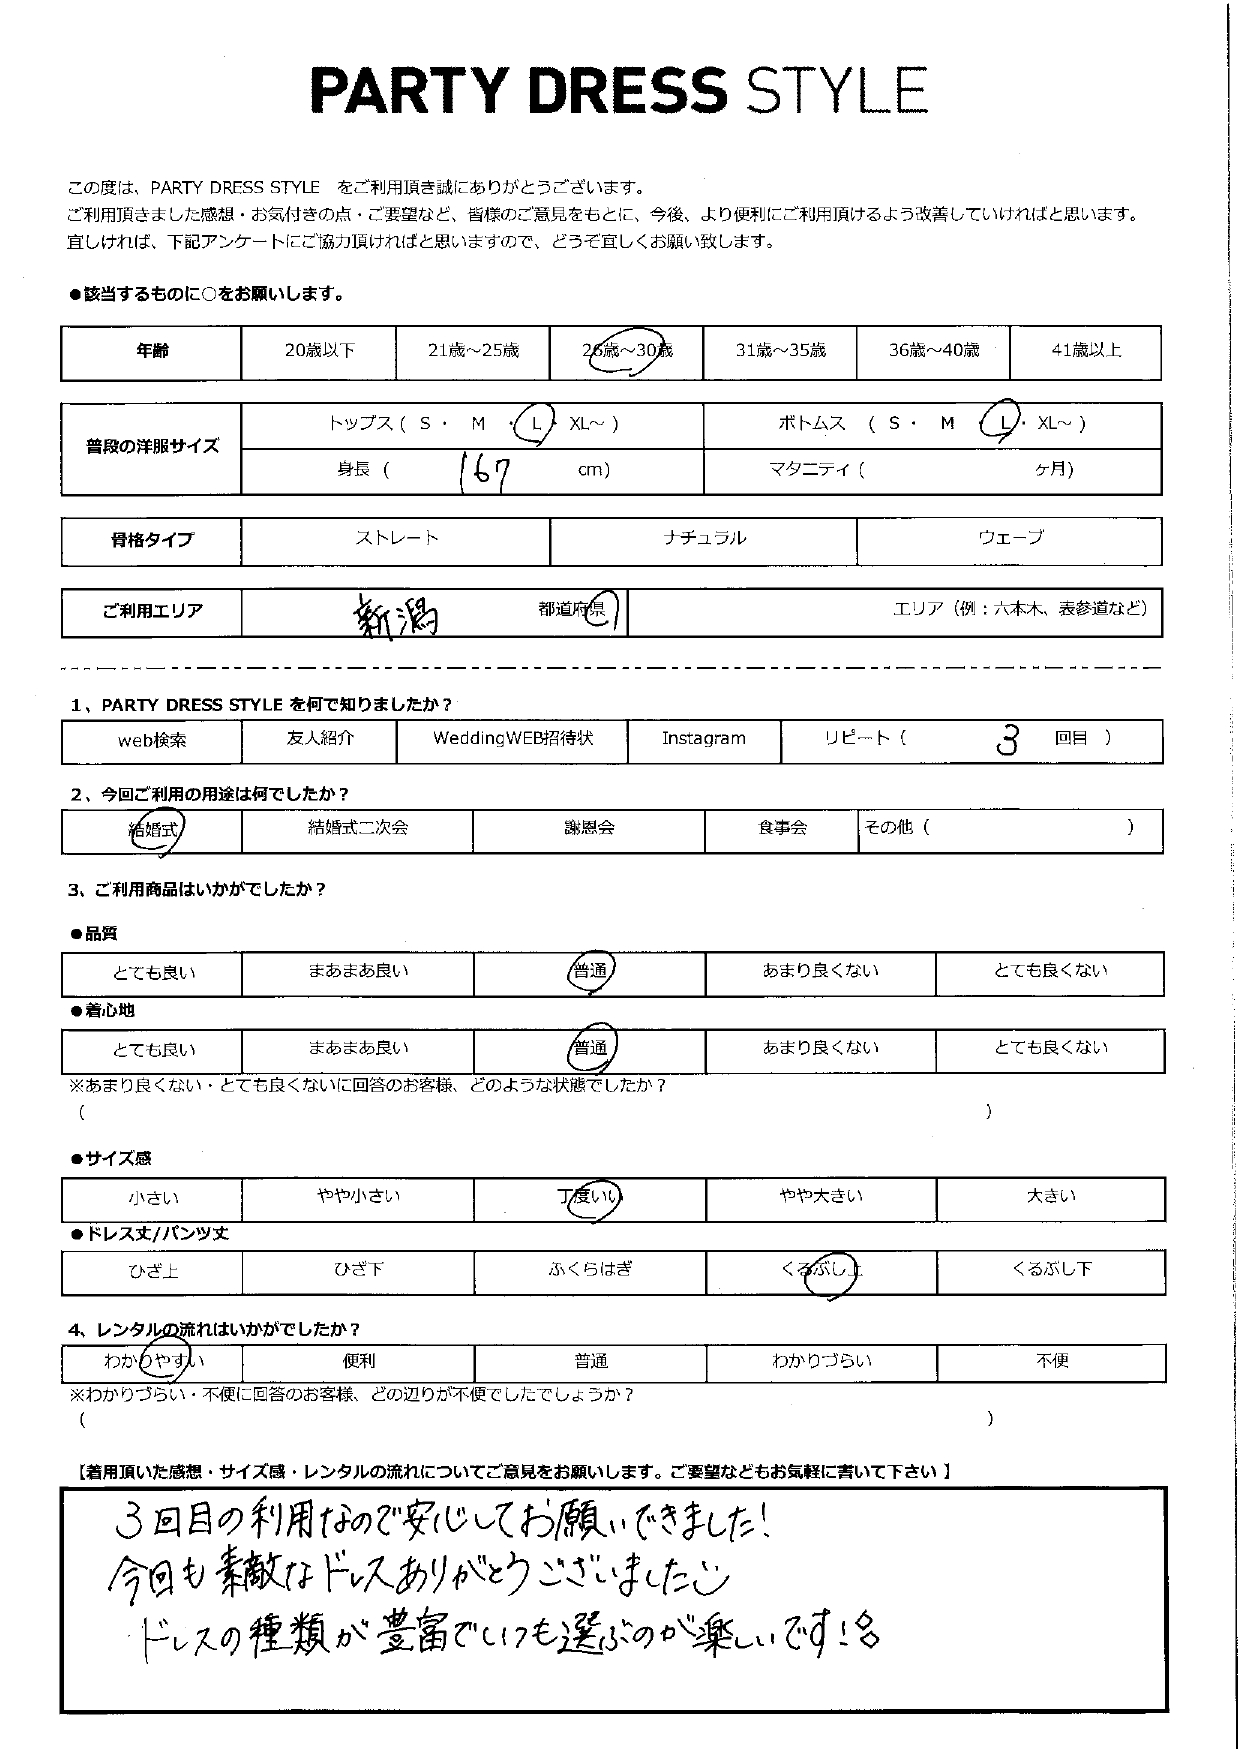 PARTY DRESS STYLE
この度は、PARTY DRESS STYLE　をご利用頂き誠にありがとうございます。
ご利用頂きました感想・お気付きの点・ご要望など、皆様のご意見をもとに、今後、より便利にご利用頂けるよう改善していければと思います。
宜しければ、下記アンケートにご協力頂ければと思いますので、どうぞ宜しくお願い致します。
●該当するものに○をお願いします。
年齢 20歳以下 21歳～25歳 26歳～30歳 31歳～35歳 36歳～40歳 41歳以上
普段の洋服サイズ トップス ( S ・ M ・ L ・ XL～ ) ボトムス ( S ・ M ・ L ・ XL～ )
身長 ( 167 cm) マタニティ ( ヶ月)
骨格タイプ ストレート ナチュラル ウェーブ
ご利用エリア 新潟 都道府県 エリア（例：六本木、表参道など）
1、PARTY DRESS STYLE を何で知りましたか？
web検索 友人紹介 WeddingWEB招待状 Instagram リピート ( 3 回目 )
2、今回ご利用の用途は何でしたか？
結婚式 結婚式二次会 謝恩会 食事会 その他 ( )
3、ご利用商品はいかがでしたか？
●品質
とても良い まあまあ良い 普通 あまり良くない とても良くない
●着心地
とても良い まあまあ良い 普通 あまり良くない とても良くない
※あまり良くない・とても良くないに回答のお客様、どのような状態でしたか？
( )
●サイズ感
小さい やや小さい 丁度いい やや大きい 大きい
●ドレス丈/パンツ丈
ひざ上 ひざ下 ふくらはぎ くるぶし上 くるぶし下
4、レンタルの流れはいかがでしたか？
わかりやすい 便利 普通 わかりづらい 不便
※わかりづらい・不便に回答のお客様、どの辺りが不便でしたでしょうか？
( )
【着用頂いた感想・サイズ感・レンタルの流れについてご意見をお願いします。ご要望などもお気軽に書いて下さい 】
3回目の利用なので安心してお願いできました！
今回も素敵なドレスありがとうございました
ドレスの種類が豊富でいつも選ぶのが楽しいです！